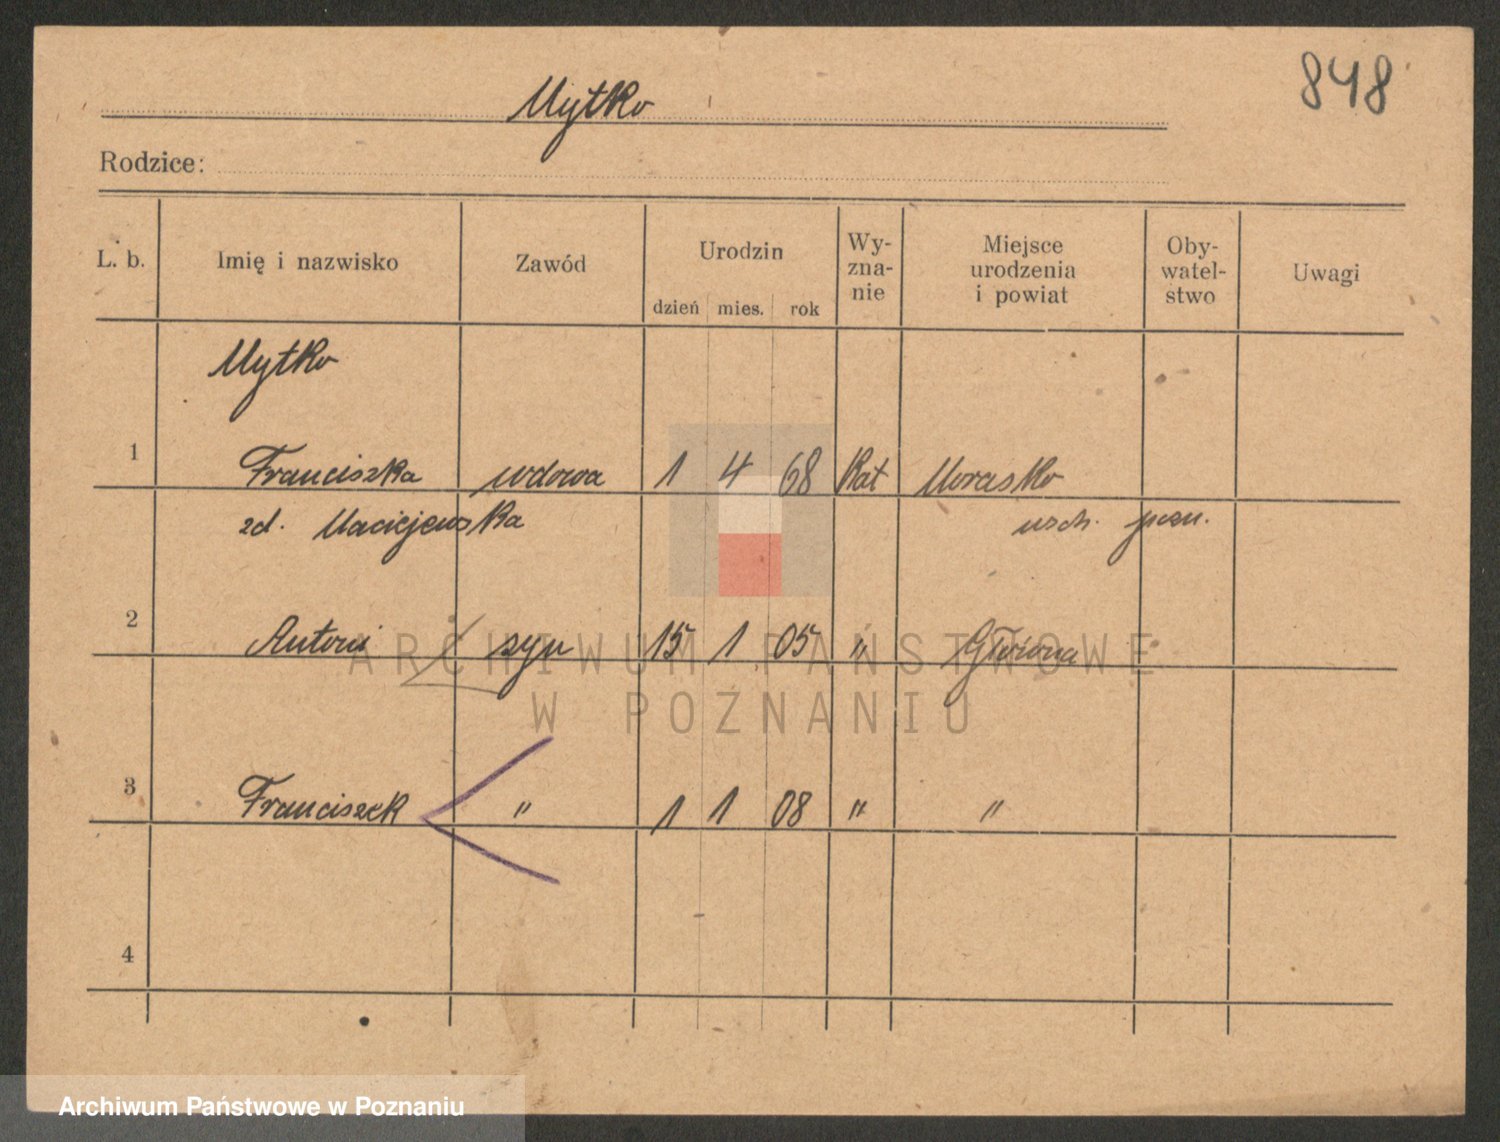 848
Mytko
Rodzice:
L. b. Imię i nazwisko Zawód Urodzin dzień mies. rok Wy-zna-nie Miejsce urodzenia i powiat Oby-watel-stwo Uwagi
Mytko
1 Franciszka wdowa 1 4 68 Kat Morasko
zd. Maciejewska wsch. pozn.
2 Antoni syn 15 1 05 " Główna
ARCHIWUM PAŃSTWOWE
W POZNANIU
3 Franciszek " 1 1 08 " "
4
Archiwum Państwowe w Poznaniu